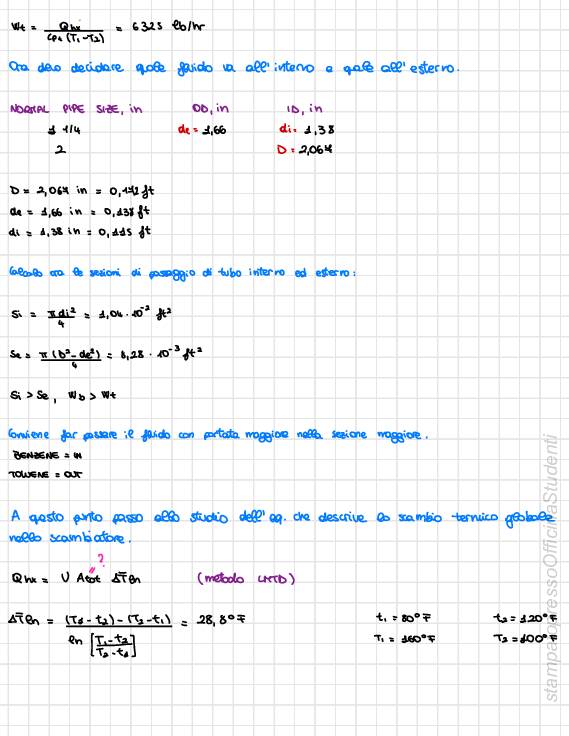 Wt = Qhx / Cpt (T₁-T₂) = 6325 lb/hr
Ora devo decidere quale fluido va all'interno e quale all'esterno.
NORMAL PIPE SIZE, in OD, in ID, in
1 1/4 de = 1,66 di = 1,38
2 D = 2,067
D = 2,067 in = 0,172 ft
de = 1,66 in = 0,138 ft
di = 1,38 in = 0,115 ft
Calcolo ora le sezioni di passaggio di tubo interno ed esterno:
Si = πdi² / 4 = 1,04 · 10⁻² ft²
Se = π(D²-de²) / 4 = 8,28 · 10⁻³ ft²
Si > Se, Wb > Wt
Conviene far passare il fluido con portata maggiore nella sezione maggiore.
BENZENE = IN
TOLUENE = OUT
A questo punto passo allo studio dell'eq. che descrive lo scambio termico globale
nello scambiatore.
?
Qhx = U Atot ΔT̄ln (metodo LMTD)
ΔT̄ln = (T₁-t₂) - (T₂-t₁) / ln [T₁-t₂ / T₂-t₁] = 28,8°F t₁ = 80°F t₂ = 120°F
T₁ = 160°F T₂ = 100°F
stampatopressoOfficinaStudenti